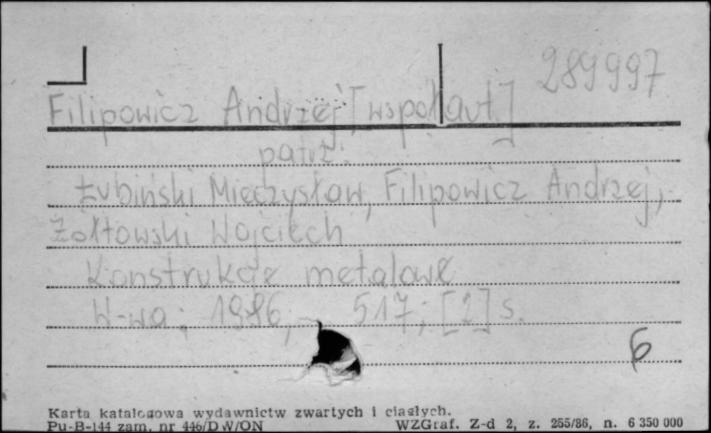 289997
Filipowicz Andrzej [współaut.]
patrz:
Łubiński Mieczysław, Filipowicz Andrzej,
Żółtowski Wojciech
Konstrukcje metalowe
W-wa; 1986; 517; [2] s.
6
Karta katalogowa wydawnictw zwartych i ciągłych.
Pu-B-144 zam. nr 446/DW/ON WZGraf. Z-d 2, z. 255/86, n. 6 350 000